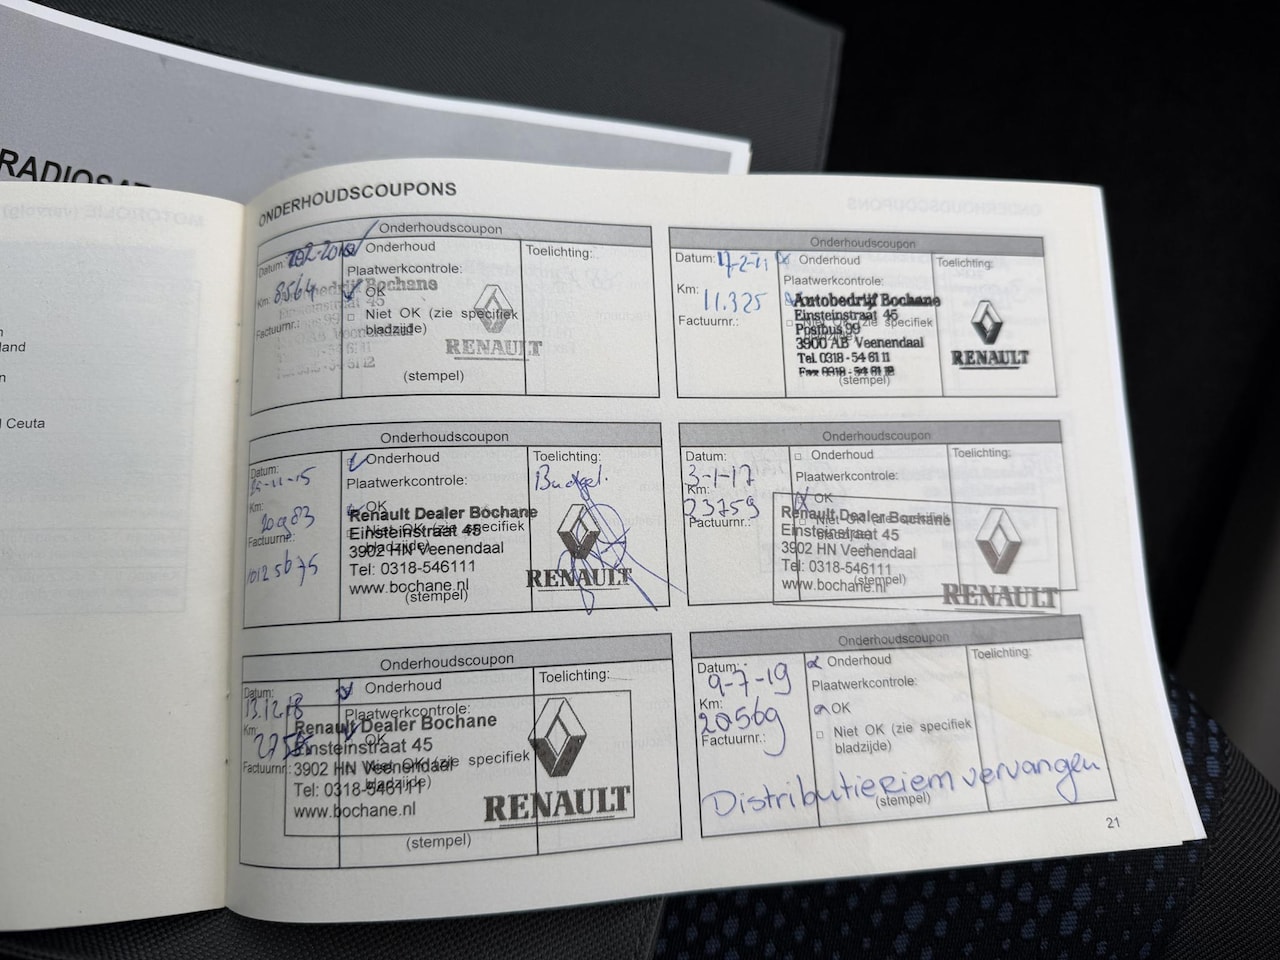 RADIOSAT
land
n
l Ceuta
ONDERHOUDSCOUPONS
Onderhoudscoupon
Datum:
Onderhoud
Toelichting:
Plaatwerkcontrole:
Km: 8564
OK
Niet OK (zie specifiek
bladzijde)
Factuurnr.:
Bochane
Einsteinstraat 45
Veenendaal
RENAULT
(stempel)
Onderhoudscoupon
Datum: 17-2-11
Onderhoud
Toelichting:
Plaatwerkcontrole:
Km:
11.325
Factuurnr.:
Autobedrijf Bochane
Einsteinstraat 45
Postbus 99
3900 AB Veenendaal
Tel. 0318 - 54 61 11
Fax 0318 - 54 61 12
RENAULT
(stempel)
Onderhoudscoupon
Datum:
25-11-15
Onderhoud
Toelichting:
Budget.
Plaatwerkcontrole:
Km:
20983
OK
Factuurnr.:
10125675
Niet OK (zie specifiek
bladzijde)
Renault Dealer Bochane
Einsteinstraat 45
3902 HN Veenendaal
Tel: 0318-546111
www.bochane.nl
RENAULT
(stempel)
Onderhoudscoupon
Datum:
3-1-17
Onderhoud
Toelichting:
Plaatwerkcontrole:
Km:
23759
OK
Factuurnr.:
Niet OK (zie specifiek
bladzijde)
Renault Dealer Bochane
Einsteinstraat 45
3902 HN Veenendaal
Tel: 0318-546111
www.bochane.nl
RENAULT
(stempel)
Onderhoudscoupon
Datum:
13.12.18
Onderhoud
Toelichting:
Plaatwerkcontrole:
Km:
OK
Factuurnr.:
Niet OK (zie specifiek
bladzijde)
Renault Dealer Bochane
Einsteinstraat 45
3902 HN Veenendaal
Tel: 0318-546111
www.bochane.nl
RENAULT
(stempel)
Onderhoudscoupon
Datum:
9-7-19
Onderhoud
Toelichting:
Plaatwerkcontrole:
Km:
20569
OK
Factuurnr.:
Niet OK (zie specifiek
bladzijde)
Distributieriem vervangen
(stempel)
21